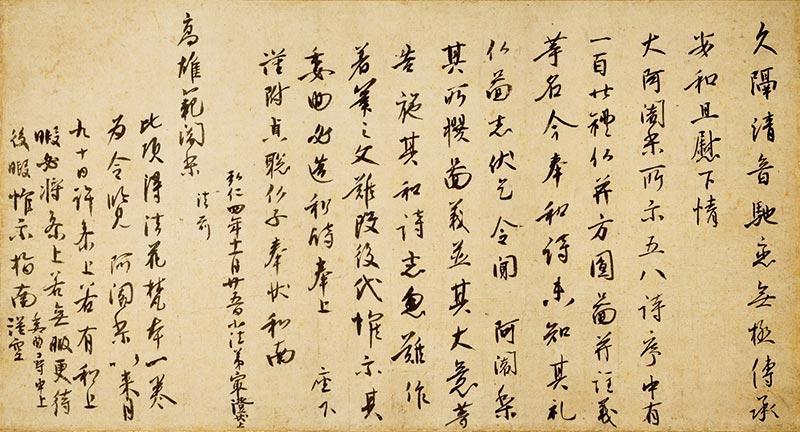 久隔清音馳恋無極傳承
安和且慰下情
大阿闍梨所示五八詩序中有
一百廿禮仏并方圓圖并注義
等名今奉和詩未知其礼
仏圖者伏乞令聞 阿闍梨
其所撰圖義並其大意等
告施其和詩者忽難作
著筆之文難改後代惟示其
委曲必造和詩奉上 座下
謹附貞聡仏子奉状和南
弘仁四年十一月廿五日小法弟最澄状上
高雄範闍梨 法前
此頃得法花梵本一巻
為令覧 阿闍梨以来月
九十日許参上若有和上
暇必将参上若無暇更待
後暇惟示指南 謹空